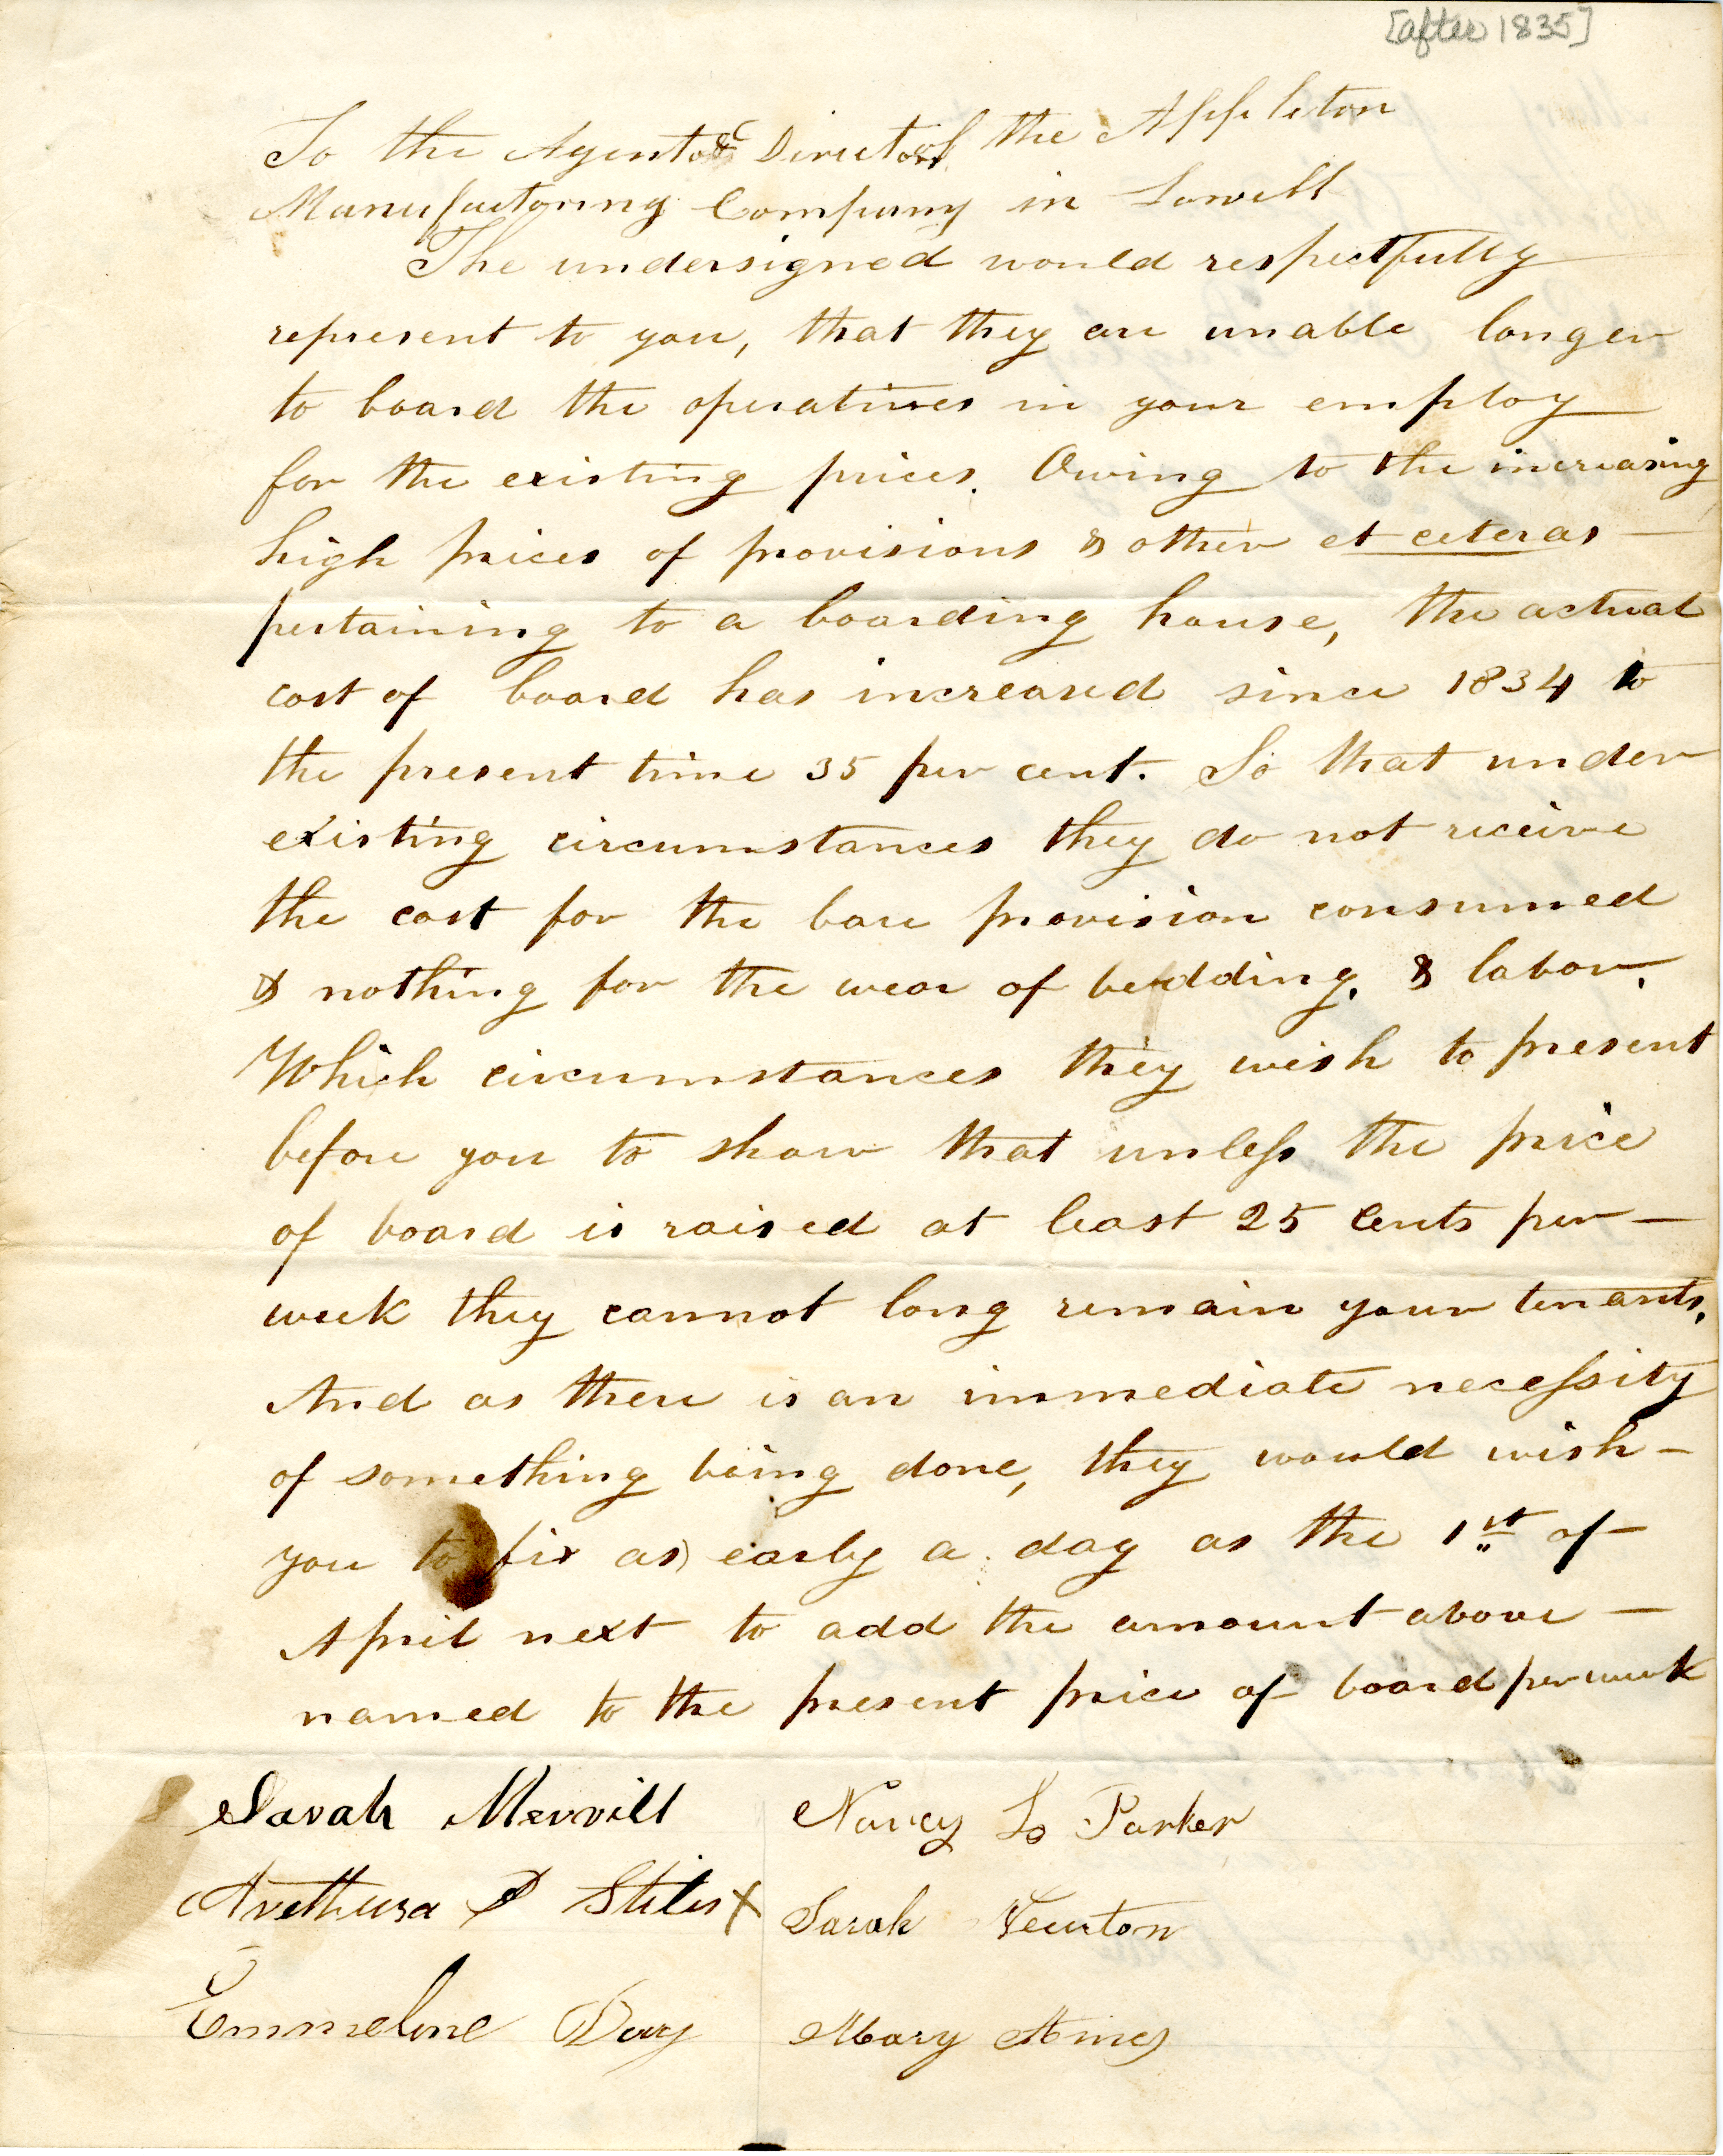 [after 1835]
To the Agent & Directors of the Appleton
Manufactoring Company in Lowell
The undersigned would respectfully
represent to you, that they are unable longer
to board the operatives in your employ
for the existing prices. Owing to the increasing
high prices of provisions & other et ceteras —
pertaining to a boarding house, the actual
cost of board has increased since 1834 to
the present time 35 per cent. So that under
existing circumstances they do not receive
the cost for the bare provision consumed
& nothing for the wear of bedding, & labor.
Which circumstances they wish to present
before you to show that unless the price
of board is raised at least 25 Cents per —
week they cannot long remain your tenants.
And as there is an immediate necessity
of something being done, they would wish —
you to fix as early a day as the 1st of —
April next to add the amount above —
named to the present price of board per week
Sarah Merrill
Nancy L Parker
Arethusa P Stiles X
Sarah Newton
Emmeline Day
Mary Ames